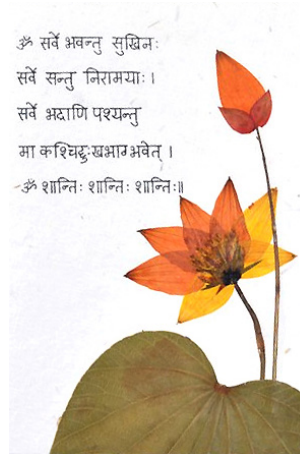 ॐ सर्वे भवन्तु सुखिनः
सर्वे सन्तु निरामयाः।
सर्वे भद्राणि पश्यन्तु
मा कश्चिद्दुःखभाग्भवेत्।
ॐ शान्तिः शान्तिः शान्तिः॥